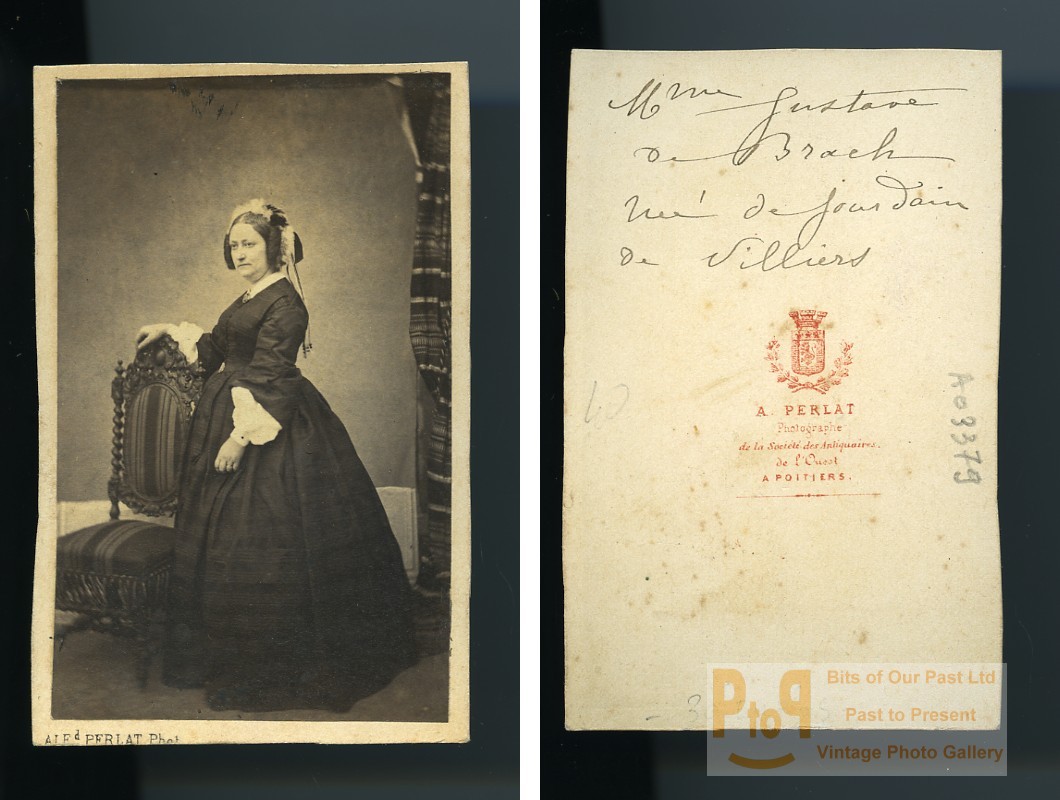 ALFd PERLAT Phot
Mme Gustave
de Brach
née de Jourdain
de Villiers
10
A. PERLAT
Photographe
de la Société des Antiquaires.
de l'Ouest
A POITIERS.
A03379
PtoP
Bits of Our Past Ltd
Past to Present
Vintage Photo Gallery